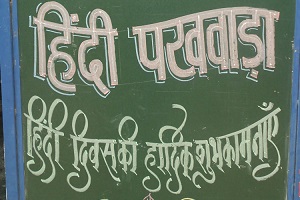 हिंदी पखवाड़ा
हिंदी दिवस की हार्दिक शुभकामनाएँ